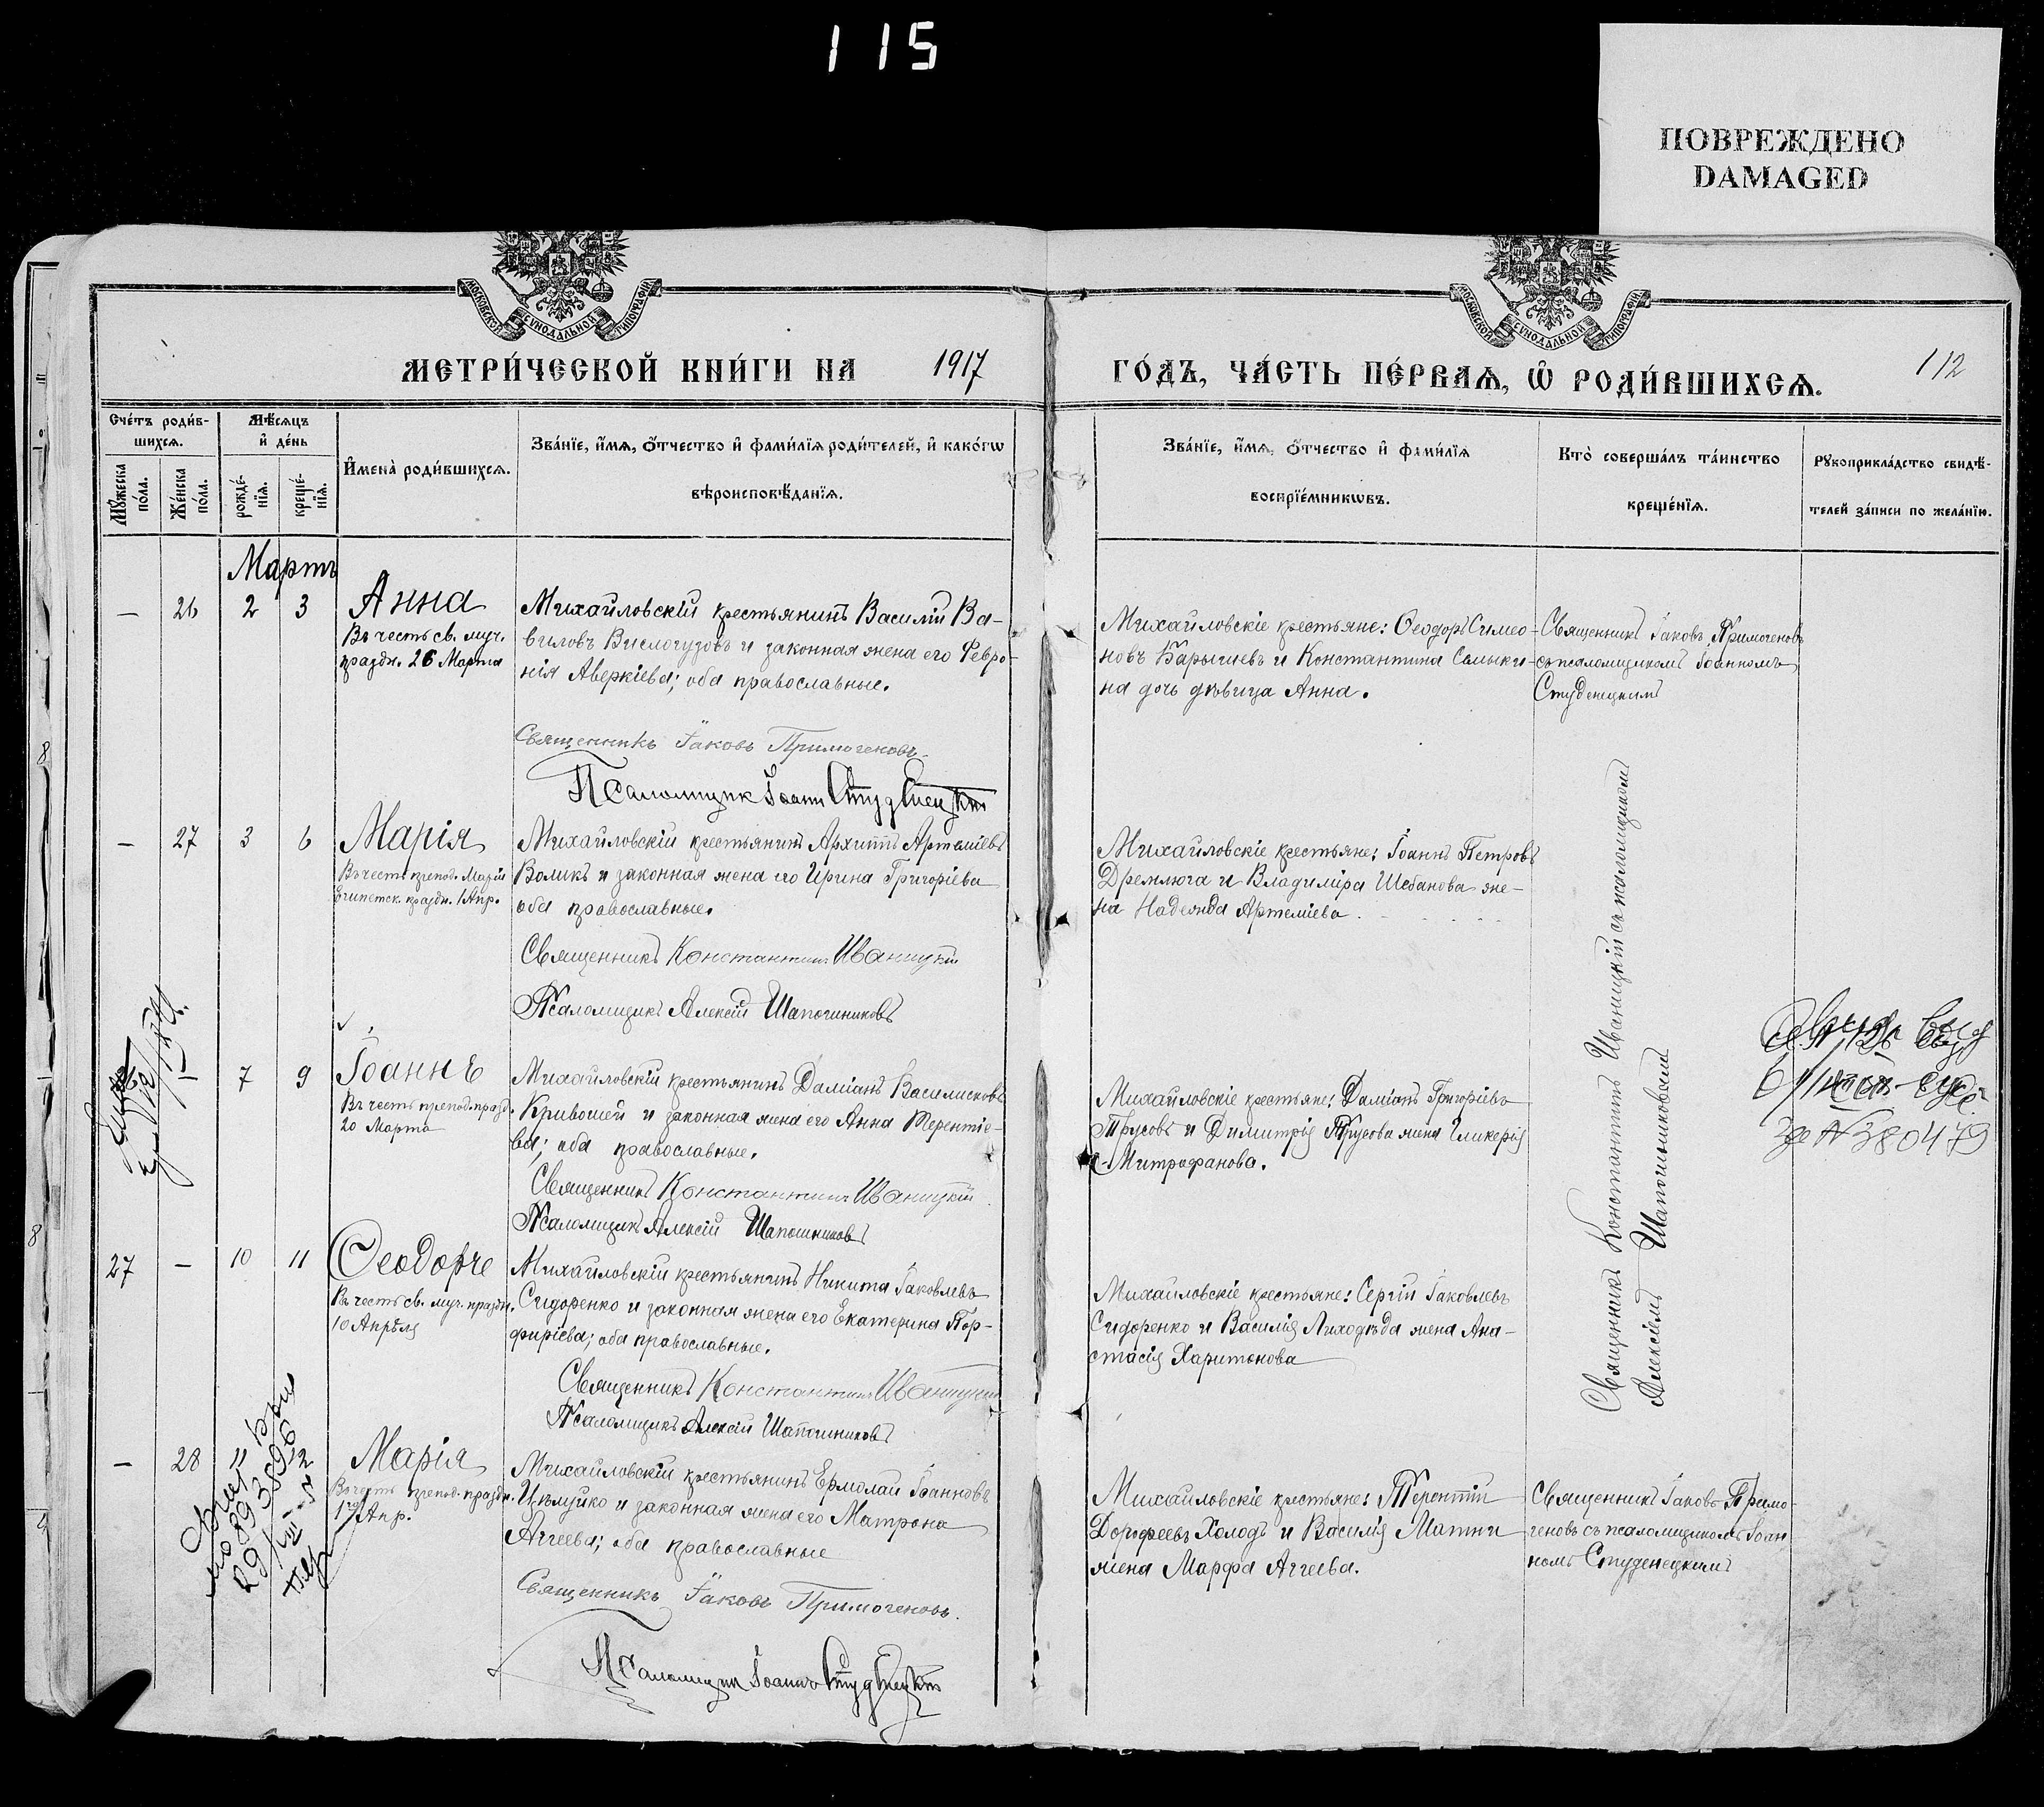 115
ПОВРЕЖДЕНО
DAMAGED
МОСКОВСКОЙ СѴНОДАЛЬНОЙ ТИПОГРАФІИ
МОСКОВСКОЙ СѴНОДАЛЬНОЙ ТИПОГРАФІИ
МЕТРИ́ЧЕСКОЙ КНИ́ГИ НА 1917 ГО́ДЪ, ЧА́СТЬ ПЕ́РВАѦ, Ѽ РОДИ́ВШИХСѦ.
112
Сче́тъ роди́в-
шихсѧ.
Мꙋ́жеска по́ла.
Же́нска по́ла.
Мѣ́сѧцъ
и҆ де́нь
рожде́-
нїѧ.
креще́-
нїѧ.
И҆мена̀ роди́вшихсѧ.
Зва́нїе, и҆́мѧ, ѻ҆́тчество и҆ фами́лїѧ роди́телей, и҆ како́гѡ
вѣроисповѣ́данїѧ.
Зва́нїе, и҆́мѧ, ѻ҆́тчество и҆ фами́лїѧ
воспрїе́мникѡвъ.
Кто̀ соверша́лъ та́инство
креще́нїѧ.
Рꙋкоприкла́дство свидѣ́-
телей за́писи по жела́нїю.
Мартъ
— 26 2 3
Анна
Въ честь св. муч.
праздн. 26 Марта
Михайловскій крестьянинъ Василій Ва-
виловъ Вислогузовъ и законная жена его Февро-
нія Аверкіева; оба православные.
Священникъ Іаковъ Примогеновъ
Псаломщик Іоанн Студенецкій
Михайловскіе крестьяне: Ѳеодоръ Симео-
новъ Барышевъ и Константина Самыки-
на дочь дѣвица Анна.
Священникъ Іаковъ Примогеновъ
съ псаломщикомъ Іоанномъ
Студенецкимъ
— 27 3 6
Марія
Въ честь препод. Маріи
Египетск. праздн. 1 Апр.
Михайловскій крестьянинъ Архиппъ Артеміевъ
Воликъ и законная жена его Ирина Григоріева
оба православные.
Священникъ Константинъ Иваницкій
Псаломщикъ Алексій Шапошниковъ
Михайловскіе крестьяне: Іоаннъ Петровъ
Дремлюга и Владиміра Шебанова же-
на Надежда Артеміева.
Священникъ Константинъ Иваницкій съ псаломщикомъ
Алексіемъ Шапошниковымъ
7 9
Іоаннъ
Въ честь препод. празд.
20 Марта
Михайловскій крестьянинъ Даміанъ Василисковъ
Кривошей и законная жена его Анна Терентіе-
ва; оба православные.
Священникъ Константинъ Иваницкій
Псаломщикъ Алексій Шапошниковъ
Михайловскіе крестьяне: Даміанъ Григоріевъ
Трусовъ и Димитрія Трусова жена Гликерія
Митрофанова.
за № 380479
27 — 10 11
Ѳеодоръ
Въ честь св. муч. праздн.
10 Апрѣля
Михайловскій крестьянинъ Никита Іаковлевъ
Сидоренко и законная жена его Екатерина Пор-
фиріева; оба православные.
Священникъ Константинъ Иваницкій
Псаломщикъ Алексій Шапошниковъ
Михайловскіе крестьяне: Сергій Іаковлевъ
Сидоренко и Василія Лиходѣда жена Ана-
стасія Харитонова
— 28 11 12
Марія
Въ честь препод. праздн.
1го Апр.
Михайловскій крестьянинъ Ермолай Іоанновъ
Цѣлуйко и законная жена его Матрона
Аггеева; оба православные
Священникъ Іаковъ Примогеновъ.
Псаломщик Іоаннъ Студенецкій
Михайловскіе крестьяне: Терентій
Дорофеевъ Холодъ и Василія Матни
жена Марфа Аггеева.
Священникъ Іаковъ Примо-
геновъ съ псаломщикомъ Іоан-
номъ Студенецкимъ